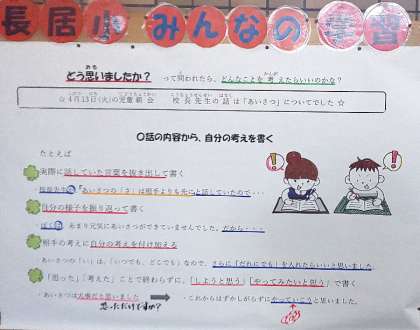 長居小 みんなの学習
どう思いましたか？ って問われたら、どんなことを考えたらいいのかな？
☆4月13日(火)の児童朝会 校長先生の話は「あいさつ」についてでした☆
〇話の内容から、自分の考えを書く
たとえば
実際に話していた言葉を抜き出して書く
・校長先生が「あいさつの「さ」は相手よりも先にと話していたので・・・
自分の様子を振り返って書く
・ぼくは、あまり元気にあいさつができていませんでした。だから・・・
相手の考えに自分の考えを付け加える
・あいさつの「い」は、「いつでも、どこでも」なので、さらに「だれにでも」を入れたらいいと思いました
「思った」「考えた」ことで終わらずに、「しようと思う」「やってみたいと思う」で書く
・あいさつは大事だと思いました ・これからはずかしがらずにやっていこうと思いました。
思っただけですか？